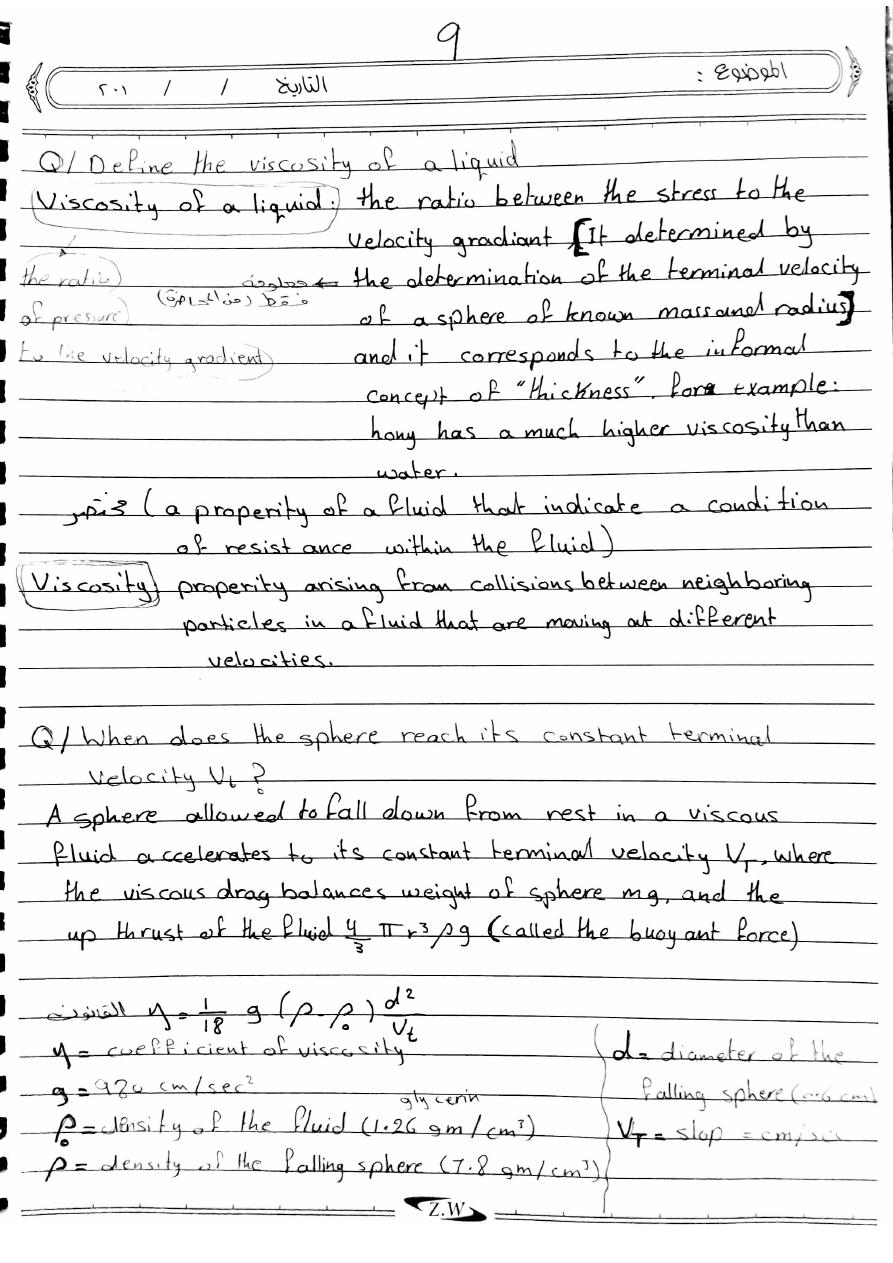 9
الموضوع :
التاريخ / / ٢٠١
Q/ Define the viscosity of a liquid
Viscosity of a liquid: the ratio between the stress to the
velocity gradiant [It determined by
the ratio معلومة ← the determination of the terminal velocity
of pressure فقط (من المحاضرة) of a sphere of known mass and radius]
to the velocity gradient and it corresponds to the informal
concept of "thickness". for example:
hony has a much higher viscosity than
water.
مختصر (a properity of a fluid that indicate a condition
of resistance within the fluid)
Viscosity properity arising from collisions between neighboring
particles in a fluid that are moving at different
velocities.
Q/ When does the sphere reach its constant terminal
velocity Vt ?
A sphere allowed to fall down from rest in a viscous
fluid accelerates to its constant terminal velocity VT, where
the viscous drag balances weight of sphere mg, and the
up thrust of the fluid 4/3 πr³ρg (called the buoyant force)
القانون η = 1/18 g (ρ-ρ₀) d²/Vt
η = coefficient of viscosity
g = 980 cm/sec²
glycerin
ρ₀ = density of the fluid (1.26 gm/cm³)
ρ = density of the falling sphere (7.8 gm/cm³)
d = diameter of the
falling sphere
VT = slop = cm/sec
Z.W